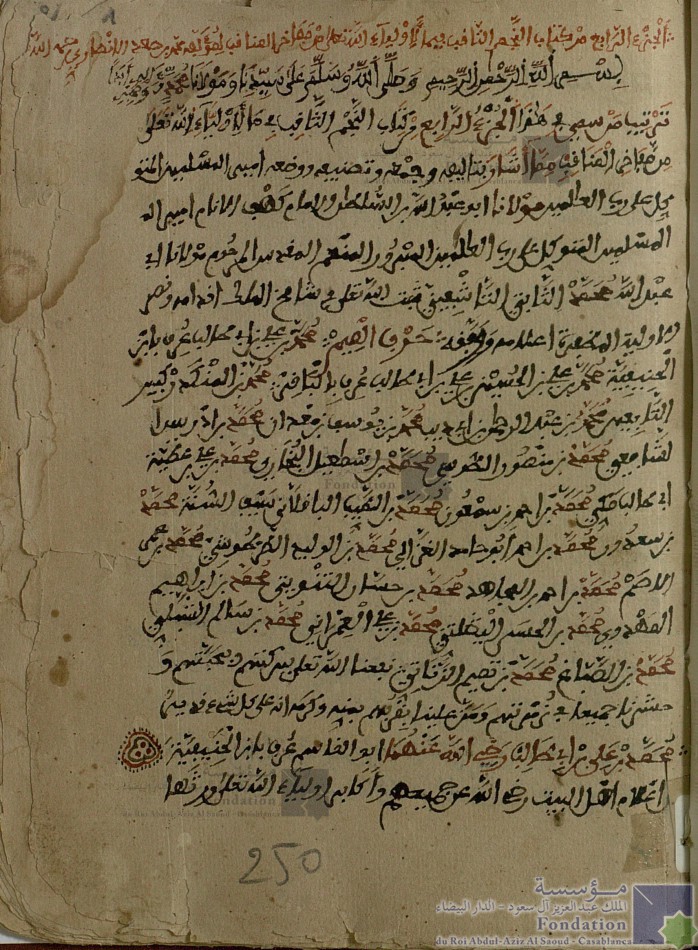 الجزء الرابع من كتاب النجم الثاقب فيما لأولياء الله تعالى من مفاخر المناقب لمؤلفه محمد بن صعد الانصاري رحمه الله
بسم الله الرحمن الرحيم وصلى الله وسلم على سيدنا ومولانا محمد وءاله وصحبه
ترتيب من سمي في هذا الجزء الرابع من كتاب النجم الثاقب في ما لأولياء الله تعالى
من مفاخر المناقب مما أشار بتاليفه وجمعه وتصنيفه ووضعه امير المسلمين المتو
كل على رب العالمين مولانا ابو عبد الله بن السلطان الامام كهف الانام امير
المسلمين المتوكل على رب العالمين المبرور المنعم المقدس المرحوم مولانا ابي
عبد الله محمد الثابتي الله تعالى في الملك اقدامه ونصر
اعلامه حرف الميم محمد بن علي بن ابي طالب عرف بابن
الحنيفية محمد بن علي بن الحسين بن علي بن ابي طالب عرف بالباقر محمد بن المنكدر وكبير
التابعين محمد بن عبد الرحمن بن ابي ذيب محمد بن يوسف بن معدان محمد بن ادريس ا
لشافعي محمد بن منصور الطوسي محمد بن اسمعيل البخاري محمد بن علي بن عطية
ابو طالب المكي محمد بن احمد بن سمعون محمد بن الطيب الباقلاني سيف السنة محمد
بن سعدون محمد بن احمد أبو حامد الغزالي محمد بن الوليد الطرطوشي محمد بن عمر
الاصم محمد بن احمد بن المجاهد محمد بن حسان التنويني محمد بن ابراهيم
المهدوي محمد بن الحسن اليصلتي محمد بن علي محمد بن سالم الشبلي
محمد بن الصباغ محمد بن تميم الزناتي نفعنا الله تعلى ببركتهم وبمحبتهم و
حشرنا جميعا في زمرتهم ومن علينا بقربهم بمنه وكرمه انه على كل شيء قدير
محمد بن علي بن ابي طالب رضي الله عنهما ابو القاسم عرف بابن الحنيفية
اعلام اهل البيت رضي الله عن جميعهم وأكابر اولياء الله تعلى
250
مؤسسة
الملك عبد العزيز آل سعود - الدار البيضاء
Fondation
du Roi Abdul-Aziz Al Saoud - Casablanca